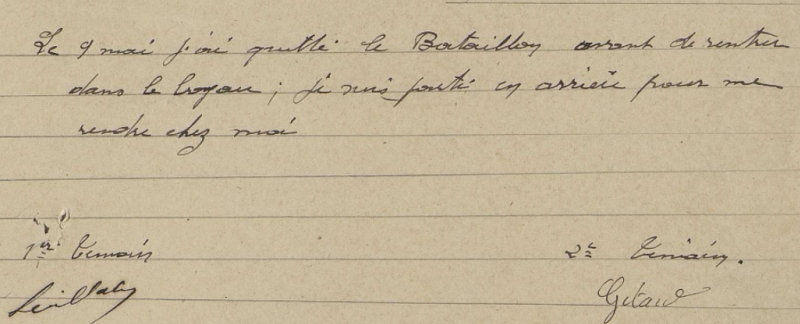 Le 9 mai j'ai quitté le Bataillon avant de rentrer
dans le boyau ; je suis parti en arrière pour me
rendre chez moi
1er témoin
2e témoin.